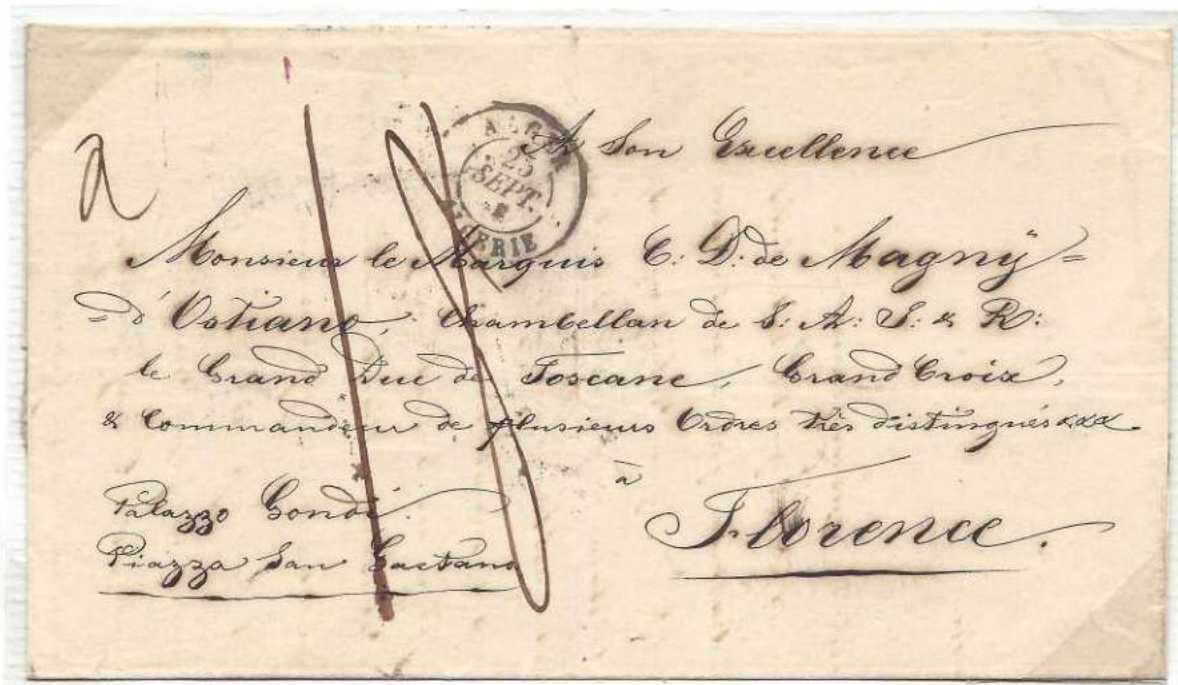 a
18
ALGER
25
SEPT.
ALGERIE
A Son Excellence
Monsieur le Marquis C: D: de Magnÿ=
=d'Ostiano, Chambellan de S: A: I: & R:
le Grand Duc de Toscane, Grand Croix,
& Commandeur de plusieurs Ordres très distingués xxx.
à
Florence.
Palazzo Gondi
Piazza San Gaetano